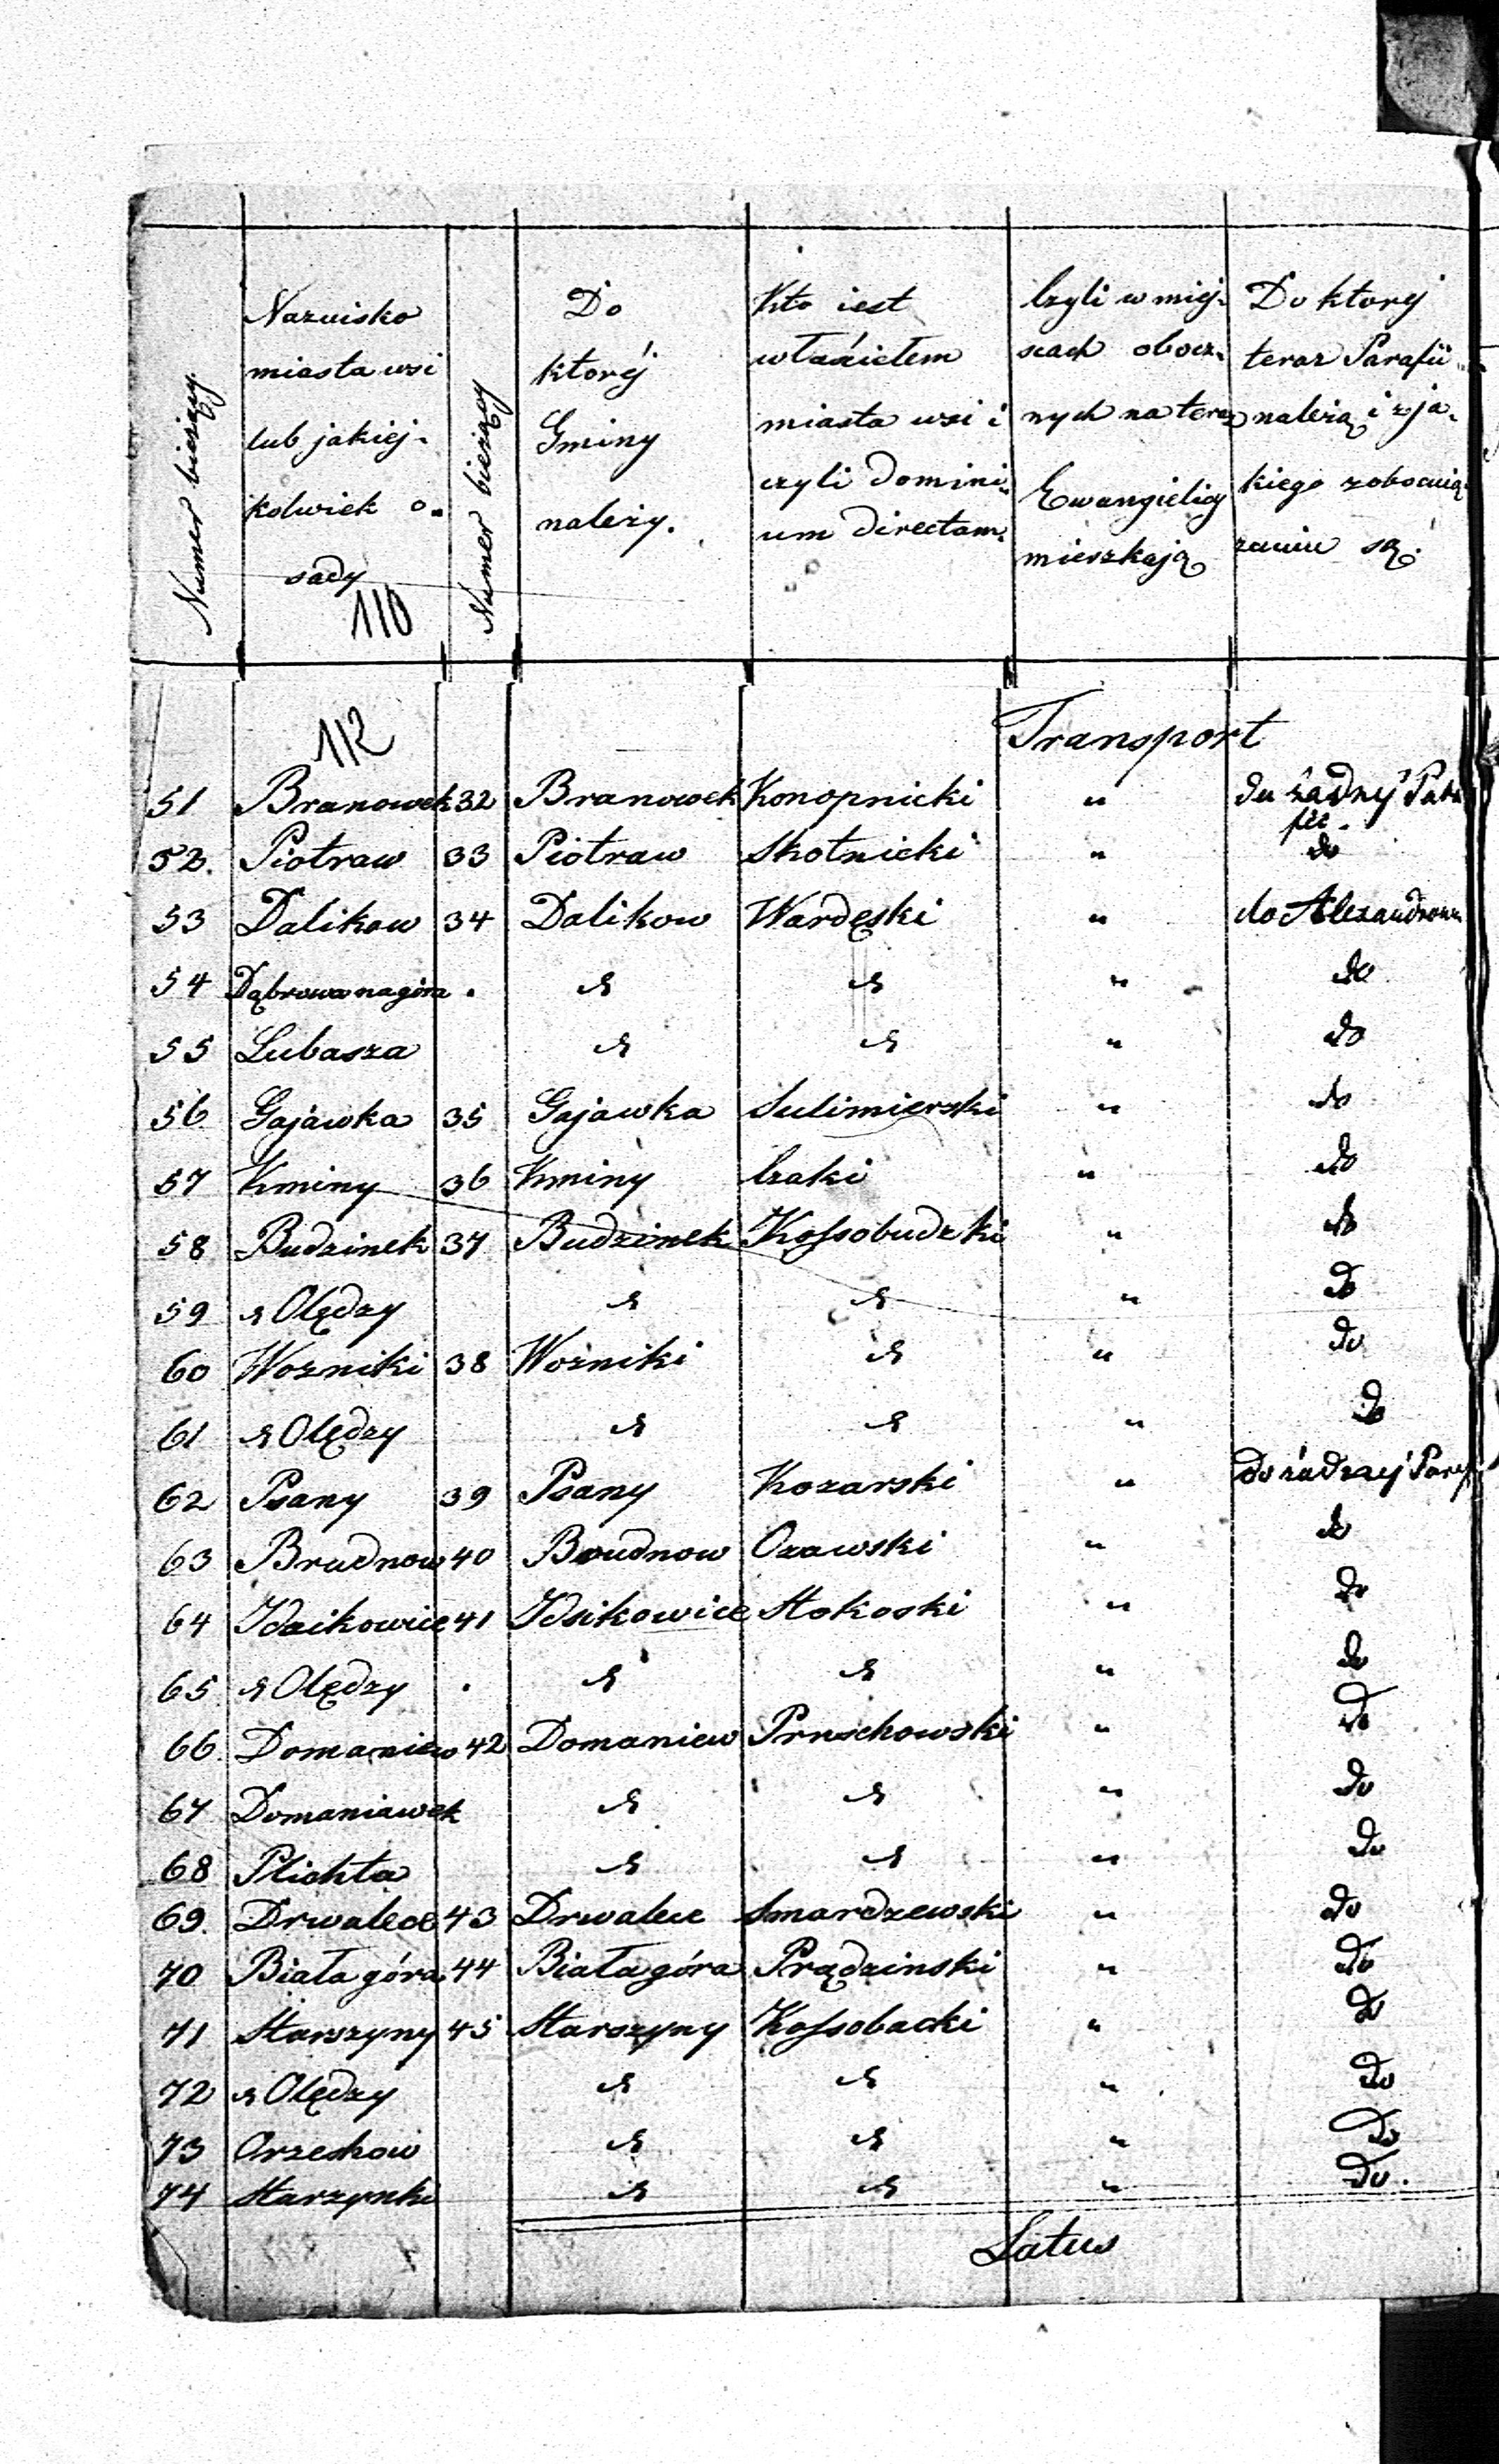 Numer bieżący.
Nazwisko
miasta wsi
lub jakiej-
kolwiek o-
sady
110
Numer bieżący
Do
którėj
Gminy
należy.
Kto iest
właścicielem
miasta wsi i
czyli domini-
um directam.
Czyli w miej-
scach obocz-
nych na teraz
Ewangielicy
mieszkają
Do ktorej
teraz Parafii
należą i z ja-
kiego zobowią-
zaniu są.
112
Transport
51 Branowek 32 Branowek Konopnicki " do żadnej Para
fii.
52. Piotraw 33 Piotraw Skotnicki " do
53 Dalikow 34 Dalikow Wardęski " do Alexandrowa
54 Dąbrowa nagóra . " do
55 Lubasza " do
56 Gajawka 35 Gajawka Sulimierski " do
57 Kminy 36 Kminy Czaki " do
58 Budzinek 37 Budzinek Kossobudzki " do
59 Olędzy " do
60 Wozniki 38 Wozniki " do
61 Olędzy " do
62 Psany 39 Psany Kozarski " do żadnej Paraf
63 Brudnow 40 Brudnow Ozawski " do
64 Idzikowice 41 Idzikowice Stokoski " do
65 Olędzy . " do
66. Domaniew 42 Domaniew Pruschowski " do
67 Domaniawek " do
68 Plichta " do
69. Drwalece 43 Drwalece Smardzewski " do
70 Biała góra 44 Biała góra Prądzinski " do
71 Starszyny 45 Starszyny Kossobacki " do
72 Olędzy " do
73 Orzeskow " do
74 Starzynki " do.
Latus